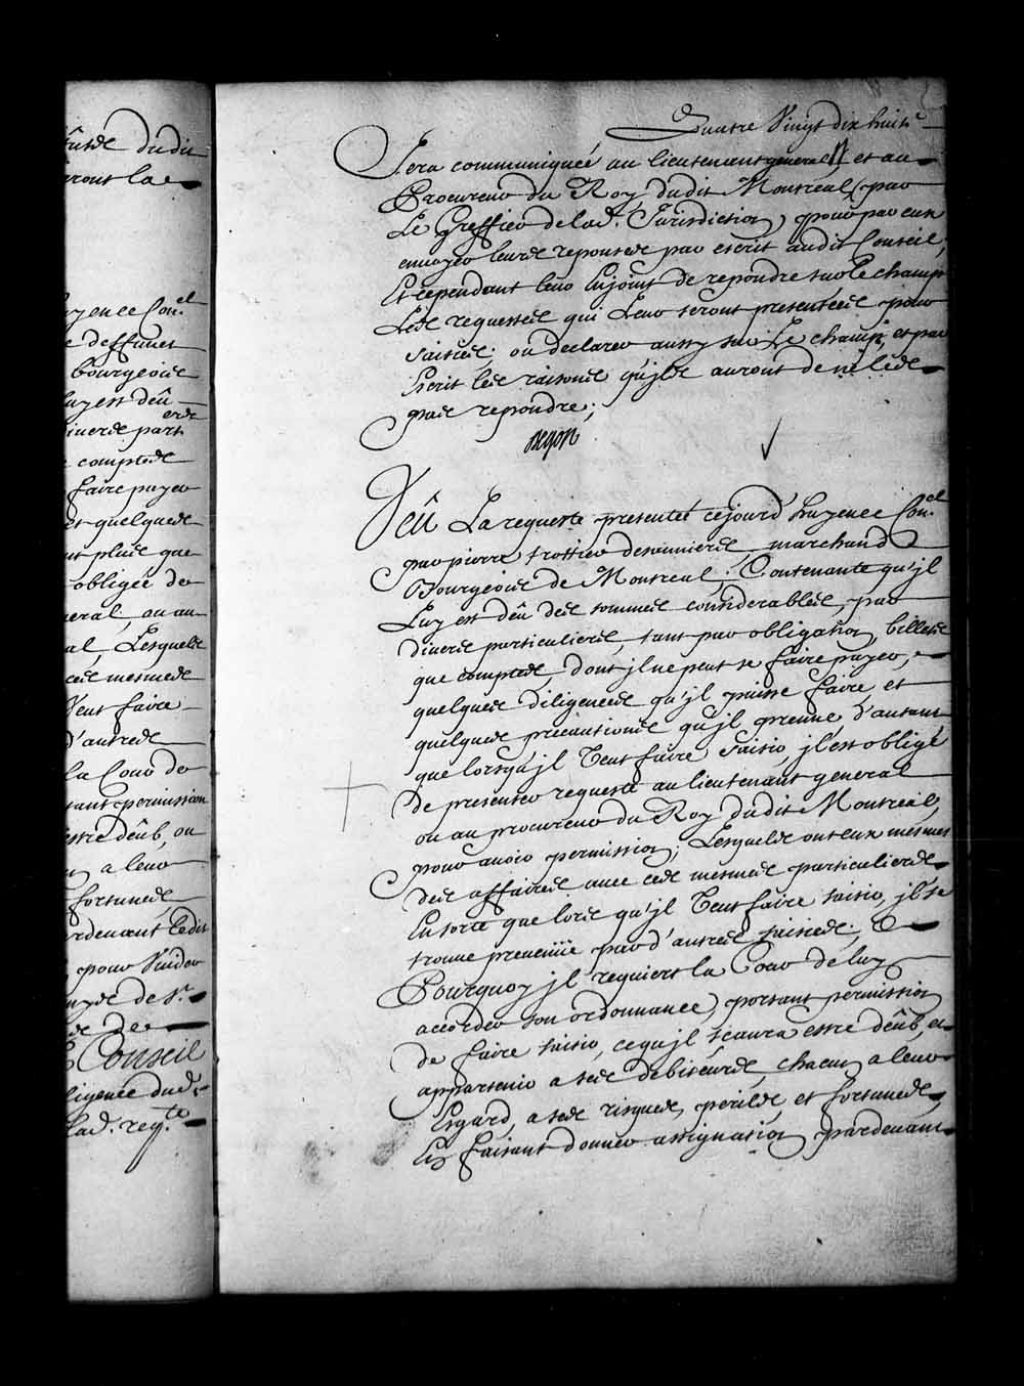 ûtés dudit
eront la
uyen ce Con.el
e deffunct
bourgeois
luy est dêu
iverses part.ers
comptes
faire payer
et quelques
nt plus que
obligée de
neral, ou au
al, Lesquels
ces mesmes
Veut faire
d'autres
la Cour de
tant permission
estre dêub, ou
a leur
fortunes
rdevant Ledit
pour Vuider
uys de S.r
de
Conseil
ligence dud.t
lad. req.te
Quatre Vingt dix huit.e
Sera communiqueé au lieutenant general, et au
Procureur du Roy dudit Montreal, par
Le Greffier de lad.e Jurisdiction, pour par eux
envoyer leurs reponses par escrit audit Conseil,
Et cependant leur Enjoint de repondre sur le champ
Les requestes qui Leur seront presentées pour
saisies, ou declarer aussy sur Le champ, et par
Escrit les raisons qu'jls auront de ne les
pas repondre;
Begon
Veû La requeste presenteé cejourd'huy en ce Con.el
par pierre trottier desauniers marchand
Bourgeois de Montreal, Contenante qu'jl
Luy est dêu des sommes considerables, par
divers particuliers, tant par obligation, billets
que comptes, dont jl ne peut se faire payer,
quelques diligences qu'jl puisse faire, et
quelques precautions qu'jl prenne d'autant
que lorsqu'jl Veut faire saisir, jl est obligé
de presenter requeste au lieutenant general
ou au procureur du Roy dudit Montreal,
pour avoir permission, Lesquels ont eux mesmes
des affaires avec ces mesmes particuliers
En sorte que lors qu'jl Veut faire saisir, jl se
trouve prevenü par d'autres saisies;
Pourquoy jl requiert la Cour de luy
accorder son ordonnance, portant permission
de faire saisir, ce qu'jl sçaura estre dêub, et
appartenir a ses debiteurs, chacun a leur
Esgard, a ses risques, perils, et fortunes,
En faisant donner assignation pardevant